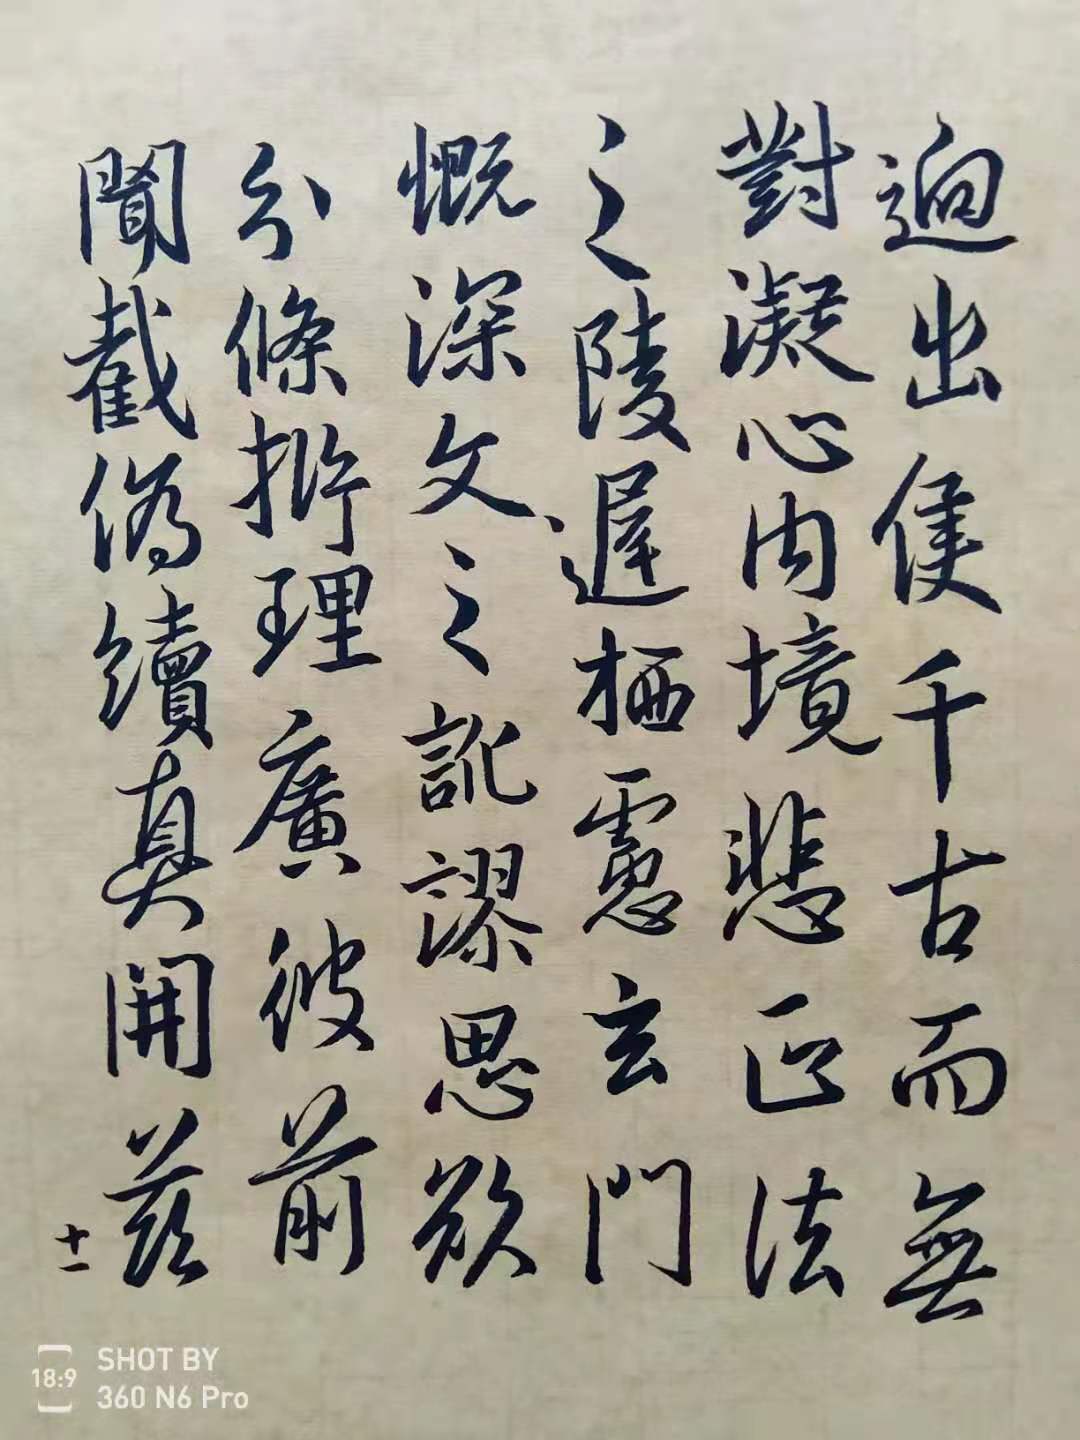 逈出侯千古而無
對凝心内境悲正法
之陵遲栖慮玄門
慨深文之訛謬思欲
分條析理廣彼前
聞截偽續真開茲
十一
SHOT BY
18:9
360 N6 Pro